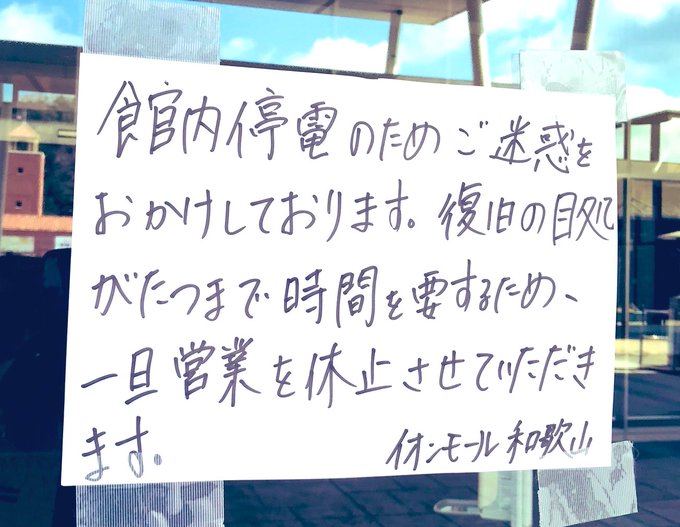 館内停電のためご迷惑を
おかけしております。復旧の目処
がたつまで時間を要するため、
一旦営業を休止させていただき
ます。
イオンモール和歌山